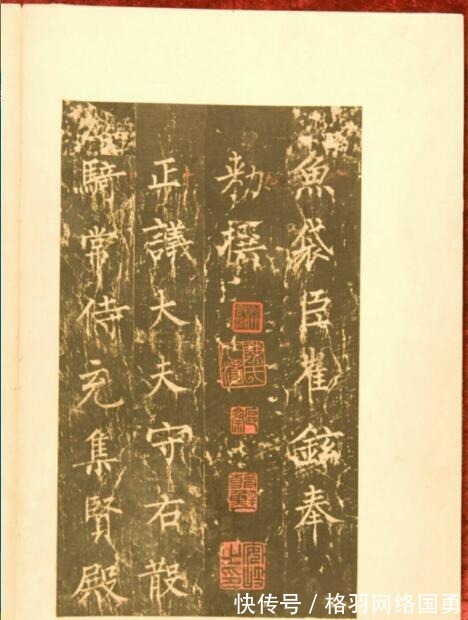 魚袋臣崔鉉奉
敕撰
正議大夫守右散
騎常侍充集賢殿
快传号/格羽网络国勇